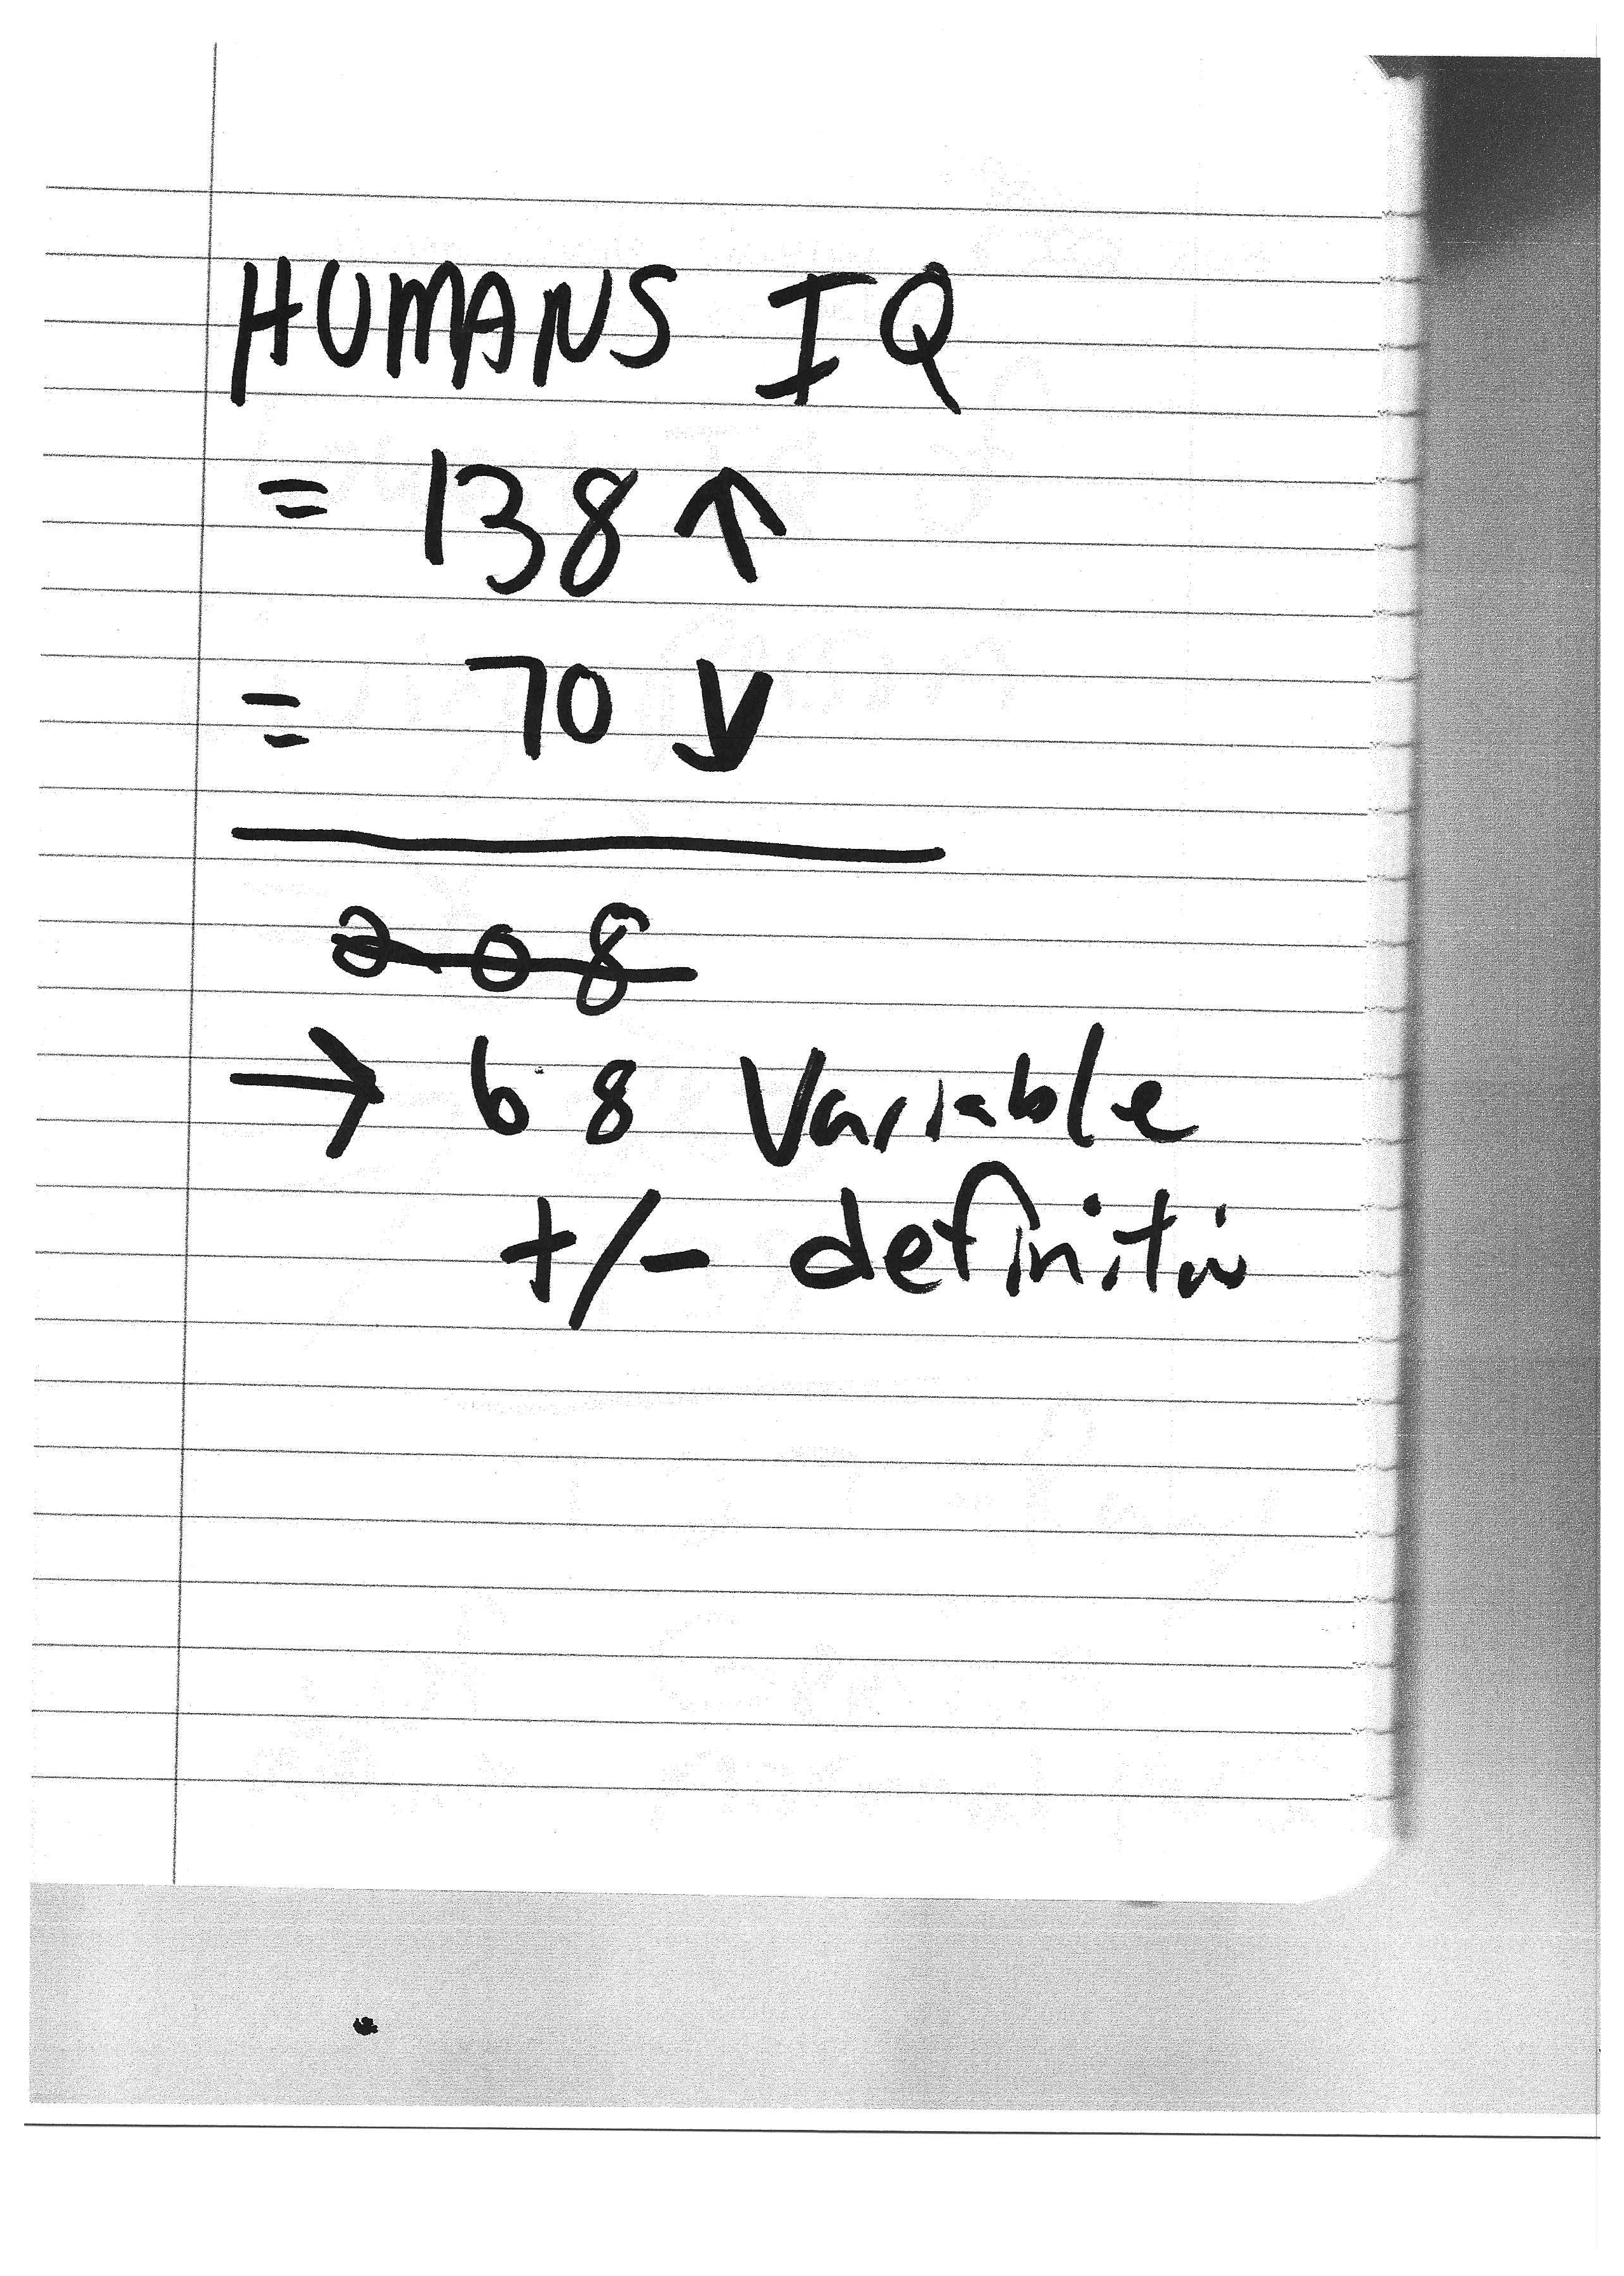 HUMANS IQ
= 138 ↑
= 70 ↓
208
→ 68 Variable
+/- definition